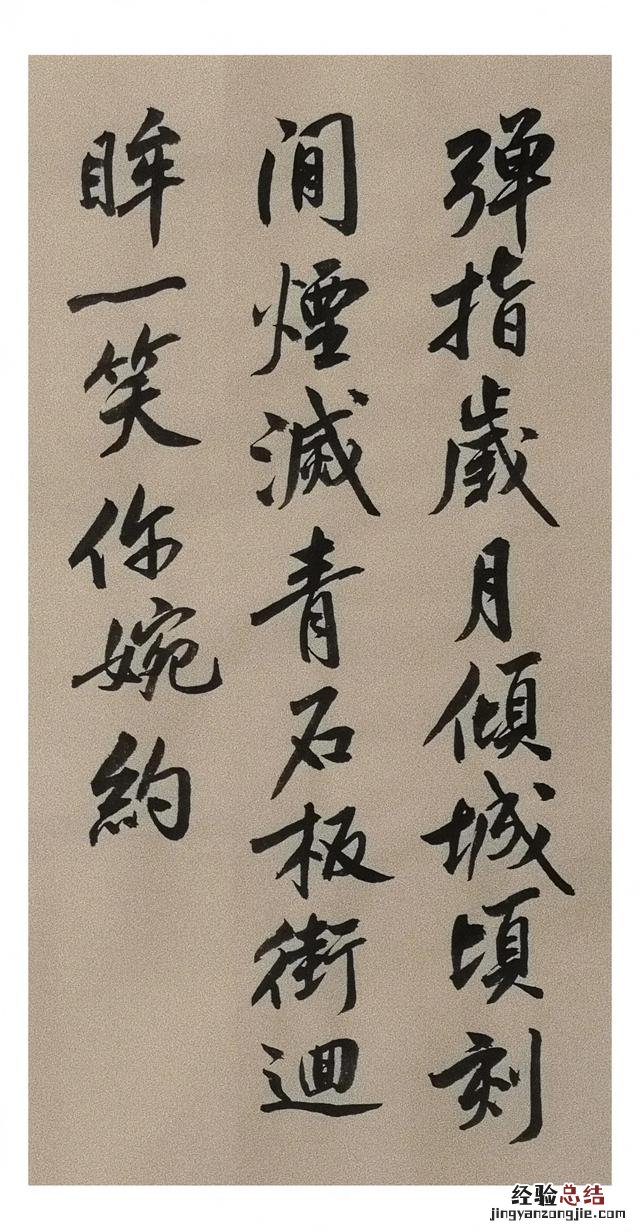 弹指歲月傾城頃刻
間煙滅青石板街迴
眸一笑你婉約
经验总结
jingyanzongjie.com